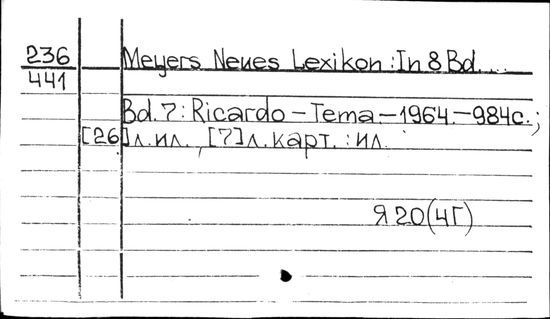 236 Meyers Neues Lexikon : In 8 Bd. ...
441
Bd. 7 : Ricardo – Tema – 1964. – 984с. ;
[26]л. ил., [7]л. карт. : ил.
Я 20(4Г)